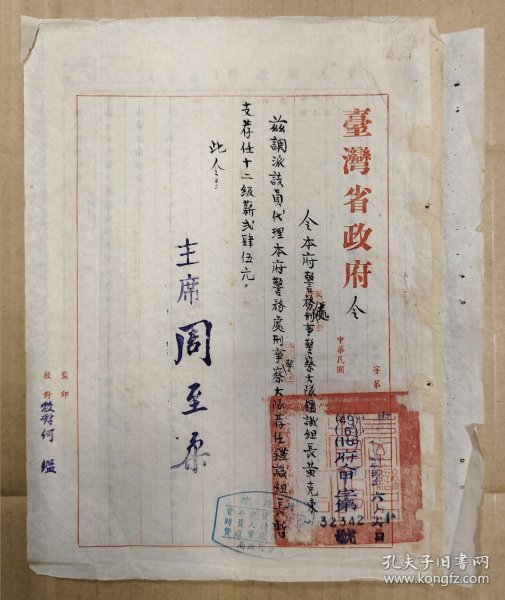 臺灣省政府令
中華民國
字第
(49)(6)(16)府人
32342
號
令本府警務處刑事警察大隊鑑識組長黃克東
茲調派該員代理本府警務處刑事警察大隊荐任鑑識組長暫
支荐任十二級薪弍肆伍元。
此令
主席周至柔
監印
校對
校對何
孔夫子旧书网
www.kongfz.com